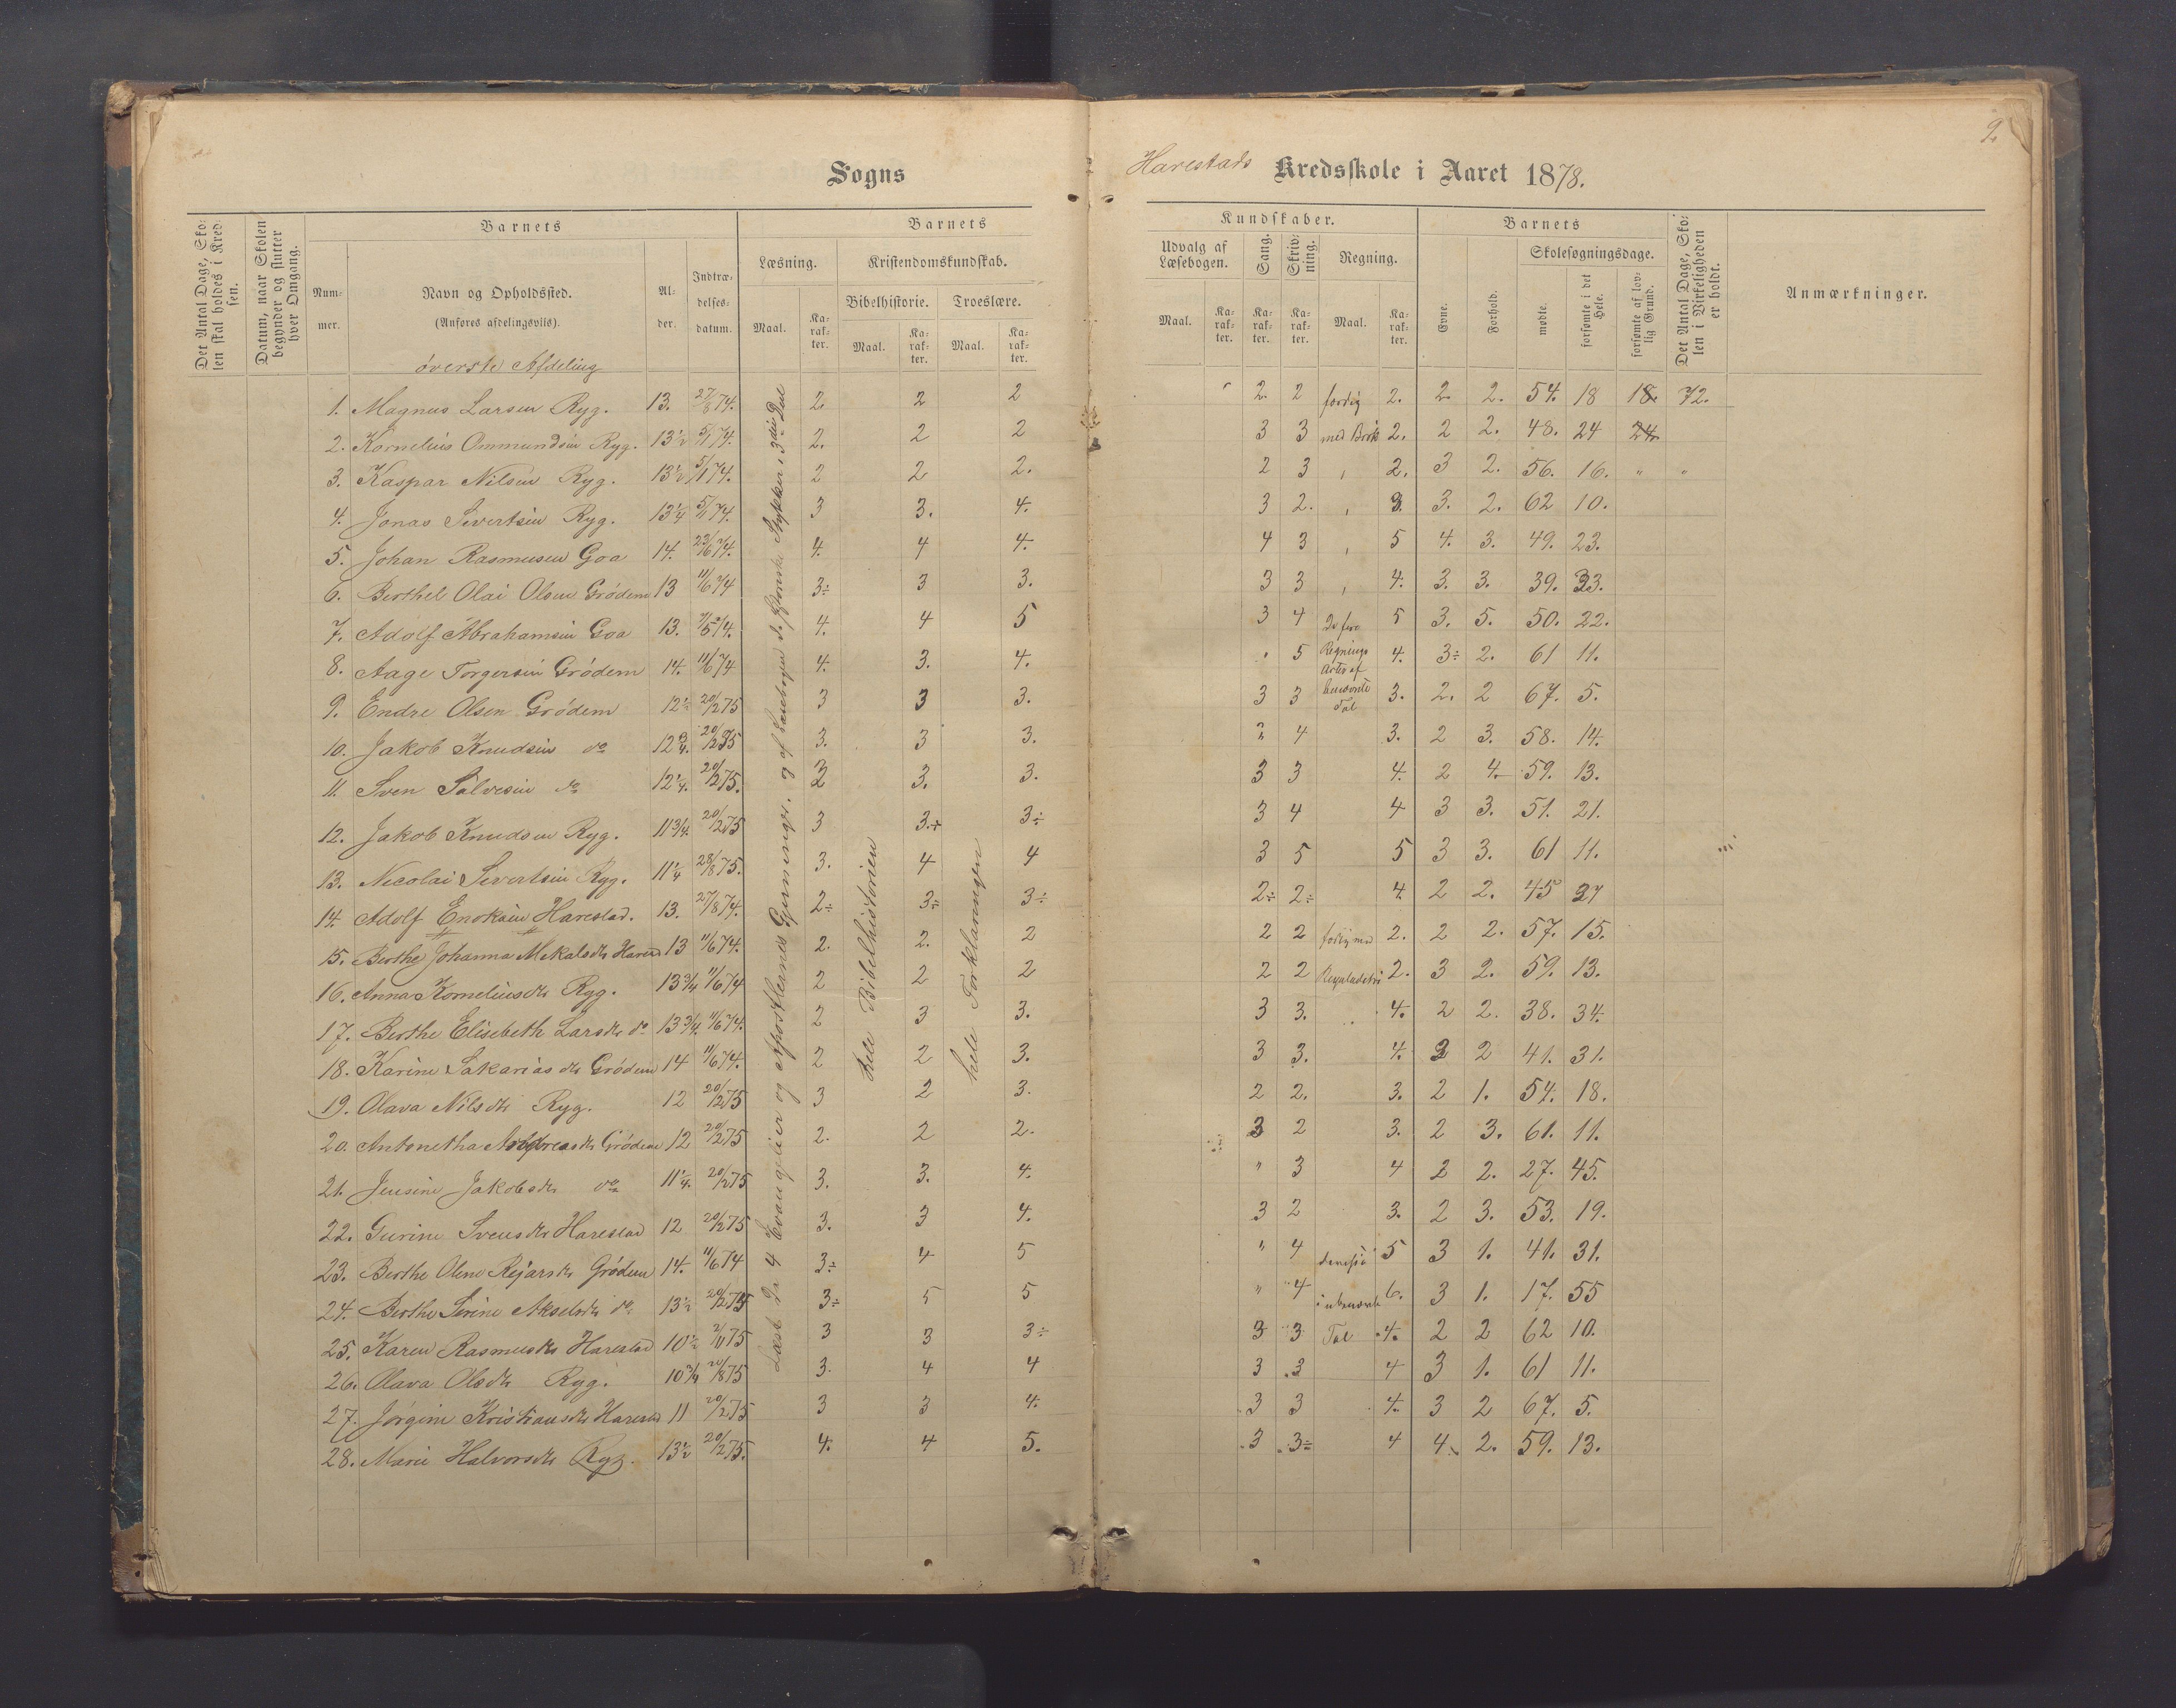 2
Sogns
Harestads Kredsskole i Aaret 1878.
Det Antal Dage, Skolen skal holdes i Kredsen.
Datum, naar Skolen begynder og slutter hver Omgang.
Barnets
Nummer.
Navn og Opholdssted.
(Anføres afdelingsvis).
Alder.
Indtrædelsesdatum.
Barnets
Læsning.
Kristendomskundskab.
Bibelhistorie. Troeslære.
Maal. Karakter. Maal. Karakter. Maal. Karakter.
Kundskaber.
Udvalg af Læsebogen.
Sang.
Skrivning.
Regning.
Maal. Karakter. Karakter. Karakter. Maal. Karakter.
Barnets
Evne.
Forhold.
Skolesøgningsdage.
mødte.
forsømte i det Hele.
forsømte af lovlig Grund.
Det Antal Dage, Skolen i Virkeligheden er holdt.
Anmærkninger.
øverste Afdeling
Læst de 4 Evangelier og Apostlernes Gjerninger, og af Læsebogen de Stykker i 3die Deel
hele Bibelhistorien
hele Forklaringen
1. Magnus Larsen Ryg. 13. 27/8 74. 2. 2 2 2. 2 færdig 2. 2. 2. 54. 18 18. 72.
2. Kornelius Ommundsen Ryg. 13½ 5/1 74. 2. 2 2 3 3 med Brøk 2. 2 2. 48. 24 24.
3. Kaspar Nilsen Ryg. 13½ 5/1 74. 2 2 2. 2 3 , 2. 3 2. 56. 16. " "
4. Jonas Sivertsen Ryg. 13¼ 5/1 74. 3 3. 4. 3 2. , 3. 3. 2. 62 10.
5. Johan Rasmusen Goa 14. 23/6 74. 4. 4 4. 4 3 , 5 4. 3. 49. 23.
6. Berthel Olai Olsen Grødem 13 11/6 74 3÷ 3 3. 3 3 , 4. 3. 3. 39. 33.
7. Adolf Abrahamsen Goa 13. 4. 4 5 3 4 De fire 5 3. 5. 50. 22.
8. Aage Torgersen Grødem 14. 11/6 74 4. 3. 4. 5 Regnings Arter af 4. 3÷ 2. 61 11.
9. Endre Olsen Grødem 12½ 20/2 75 3 3 3. 3 3 benævnte Tal 3. 2. 2 67. 5.
10. Jakob Knudsen do 12¾. 20/2 75 3. 3 3. 4 3. 2 3. 58. 14.
11. Sven Salvesen do 12¼. 20/2 75. 3 3. 3. 3 3 4. 2 4. 59. 13.
12. Jakob Knudsen Ryg. 11¾. 20/2 75 3 3.+ 3÷ 3 4 4 3 3. 51. 21.
13. Necolai Severtsen Ryg. 11¼ 28/8 75. 3. 4 4 3 5 5 3 3. 61 11.
14. Adolf Enoksen Harestad. 13. 27/8 74. 2÷ 3÷ 3÷ 2÷ 2÷ 4. 2 2. 45 27
15. Berthe Johanna Mekalsdtr 13 11/6 74. 2. 2. 2 2 2 2. 2 2. 57. 15.
16. Anna Korneliusdtr Ryg. 13¾ 11/6 74 2 2 2 2 2 2. 3 2. 59. 13.
17. Berthe Elisebeth Larsdtr do 13¾. 11/6 74. 2 3 3. 3 3. 4. 2 2. 38. 34.
18. Karine Sakariasdtr Grødem 14 11/6 74. 2 2 3. 3 3. 4. 2 2 41. 31.
19. Olava Nilsdtr Ryg. 12 20/2 75 3 2 3. 2 2. 3. 2 1. 54. 18.
20. Antonetha Andreasdtr Grødem 12 20/2 75 2. 2 2. 3 2 3. 2 3. 61. 11.
21. Jensine Jakobsdtr do 11¼. 20/2 75 3. 3. 4. " 3 4 2 2. 27. 45.
22. Gurine Svensdtr Harestad 12 20/2 75 3. 3 4. 3 2 3. 2 3. 53. 19.
23. Berthe Olene Rejarsdtr Grødem 14. 11/6 74 3÷ 4 5 " 4 5 3 1. 41. 31.
24. Berthe Serine Akselsdtr do 13½ 20/2 75 3÷ 5 5 " 4 i ubenævnte 6. 3 1. 17. 55
25. Karen Rasmusdtr Harestad 10½ 75 3 3 3÷ 3 3 Tal 4. 2 2 62 10.
26. Olava Olsdtr Ryg. 10¾ 20/8 75 3. 4 4 3 3 4 3 1. 61 11.
27. Jørgine Kristiansdtr 11 20/2 75 3 3 4. 3 3 4. 3 2 67. 5.
28. Marie Halvorsdtr Ryg. 13½ 20/2 75. 4. 4 5. 3 3÷ 4 4. 2. 59. 13.